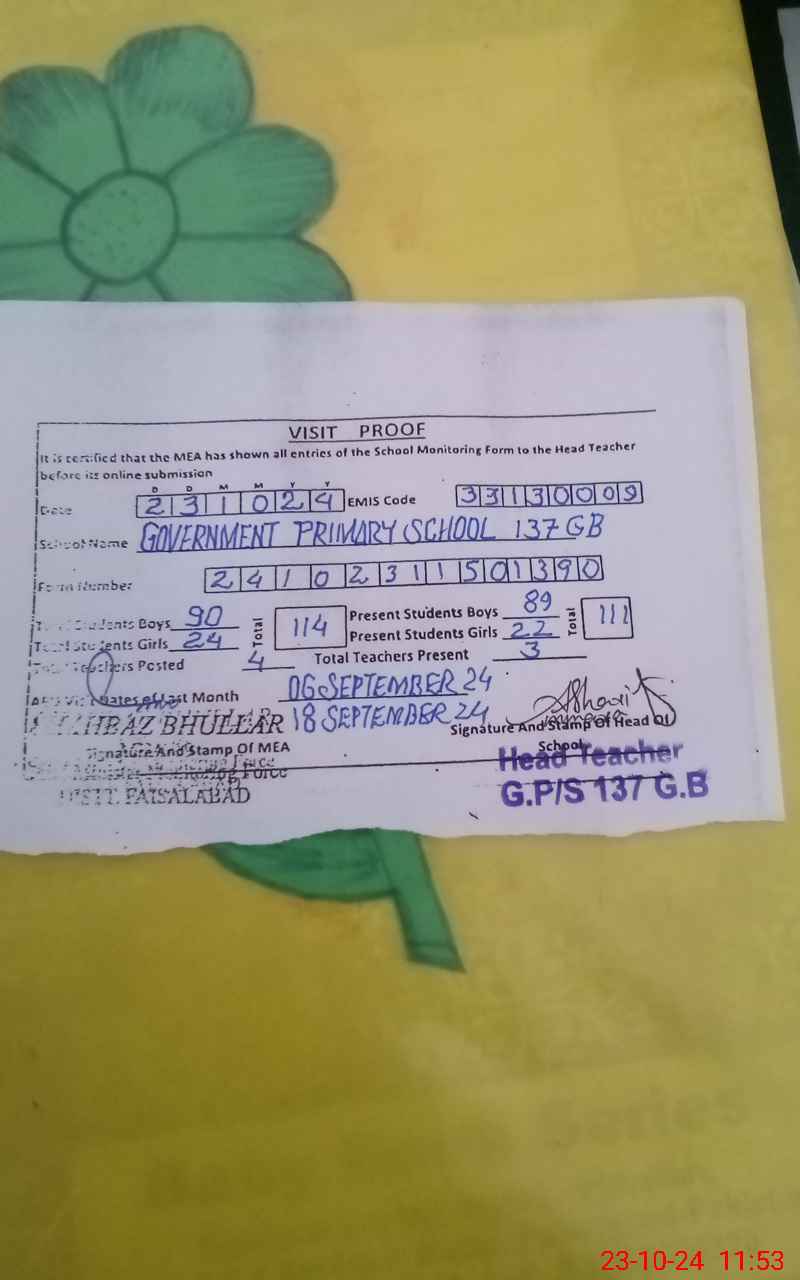 VISIT PROOF
It is certified that the MEA has shown all entries of the School Monitoring Form to the Head Teacher
before its online submission
D D M M Y Y
Date 2 3 1 0 2 4 EMIS Code 3 3 1 3 0 0 0 9
School Name GOVERNMENT PRIMARY SCHOOL 137 GB
Form Number 2 4 1 0 2 3 1 1 5 0 1 3 9 0
Total Students Boys 90 Total 114 Present Students Boys 89 Total 111
Total Students Girls 24 Present Students Girls 22
Total Teachers Posted 4 Total Teachers Present 3
Visit Dates of Last Month 06 SEPTEMBER 24
18 SEPTEMBER 24
BHULLAR
Signature And Stamp Of MEA
Signature And Stamp Of Head Of
School
Monitoring Force
DISTT. FAISALABAD
Head Teacher
G.P/S 137 G.B
23-10-24 11:53